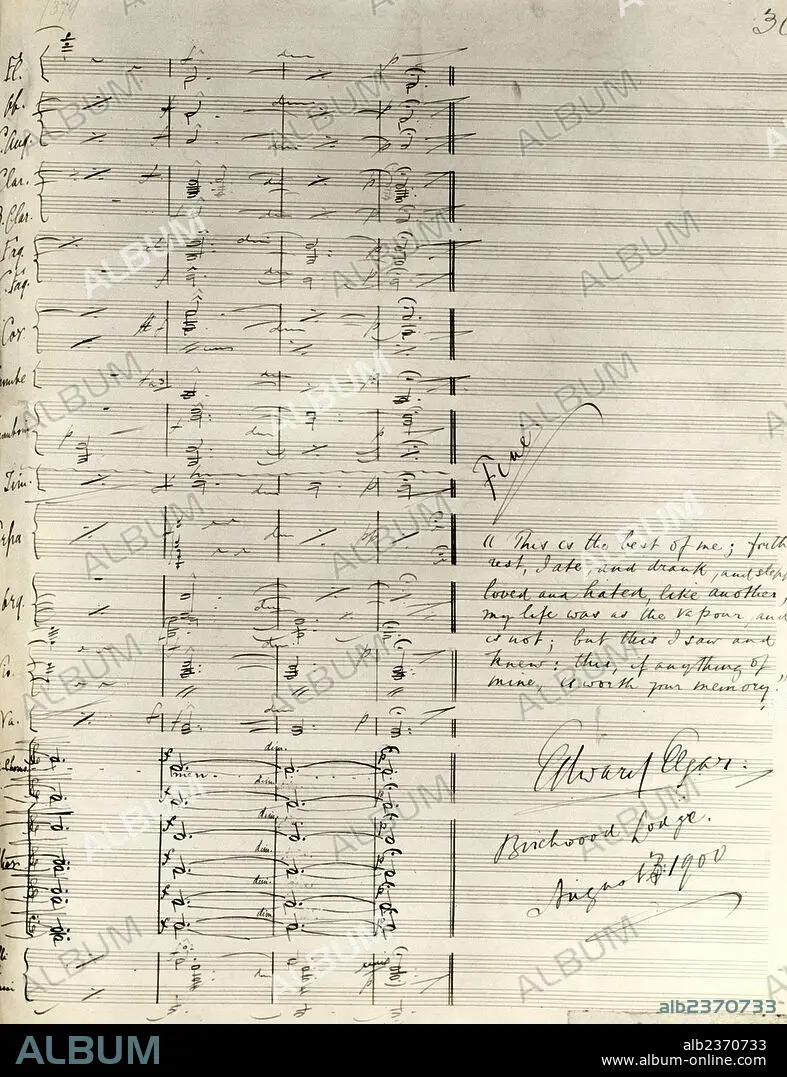 30
Fl.
Ob.
C. Ang.
Clar.
B. Clar.
Fag.
C. Fag.
Cor
Tim.
Org.
Va.
dim
dim
dim
dim
dim
dim
dim.
men.
dim.
dim.
dim.
dim.
dim.
Fine.
"This is the best of me; for the
rest, I ate, and drank, and slept
loved and hated, like another,
my life was as the vapour, and
is not; but this I saw and
knew: this, if anything of
mine, is worth your memory."
Edward Elgar.
Birchwood Lodge.
August 3 1900
ALBUM
alb2370733
ALBUM
alb2370733
www.album-online.com